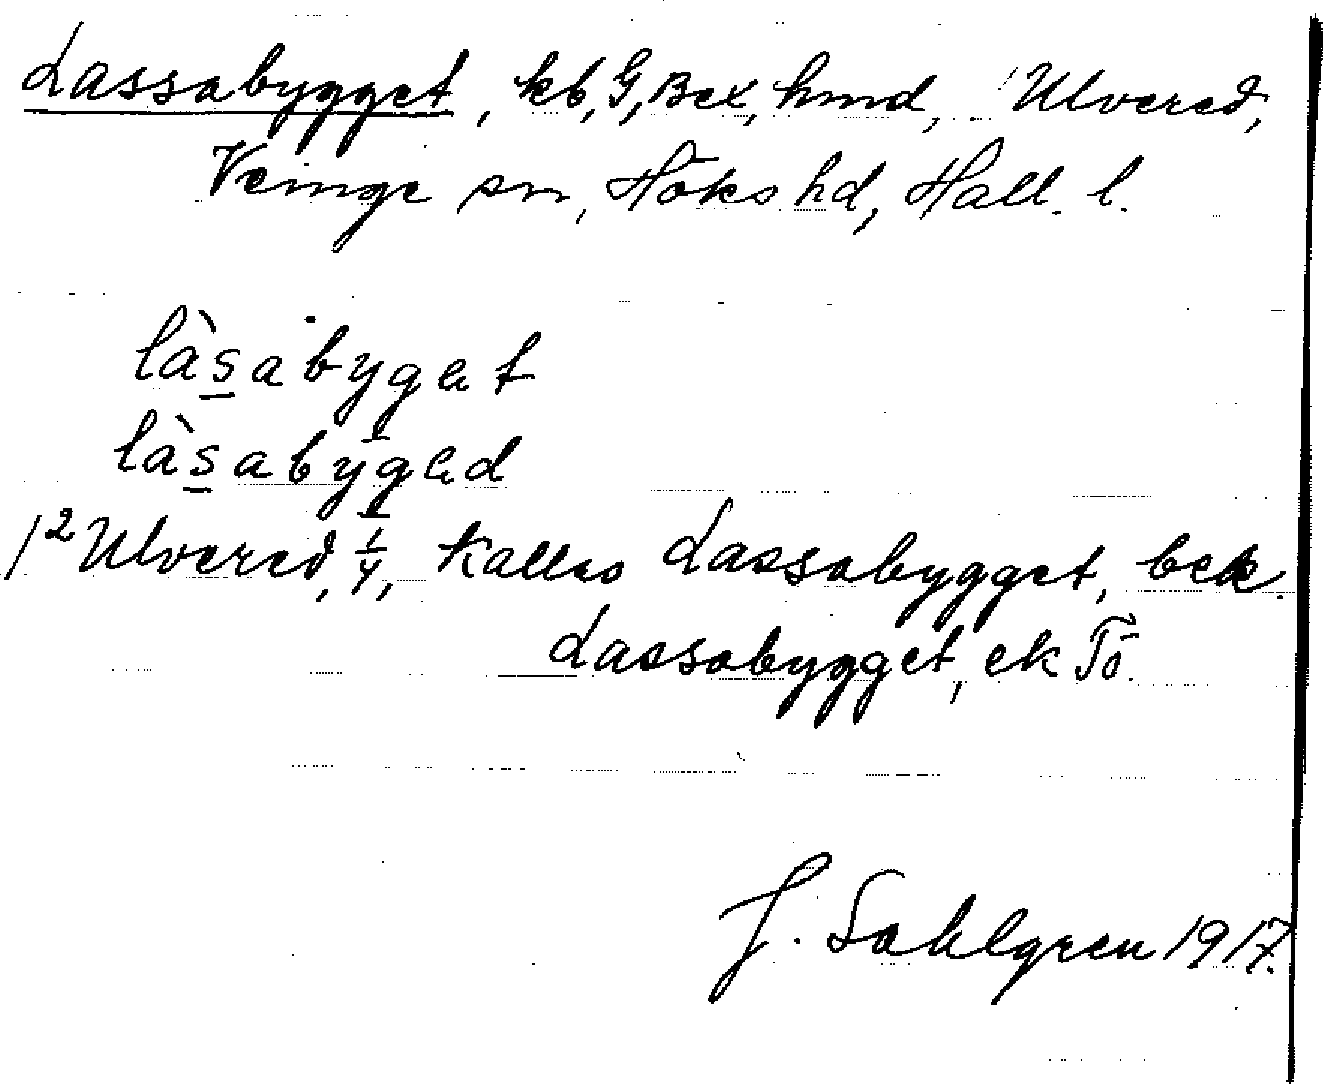 Lassabygget, kb, G, Bex, hmd, 1 Ulvered,
Veinge sn, Höks hd, Hall. l.
làsabygət
làsabygəd
1² Ulvered, 1/4, kallas Lassabygget, bek.
Lassabygget, ek Tö.
J. Sahlgren 1917.